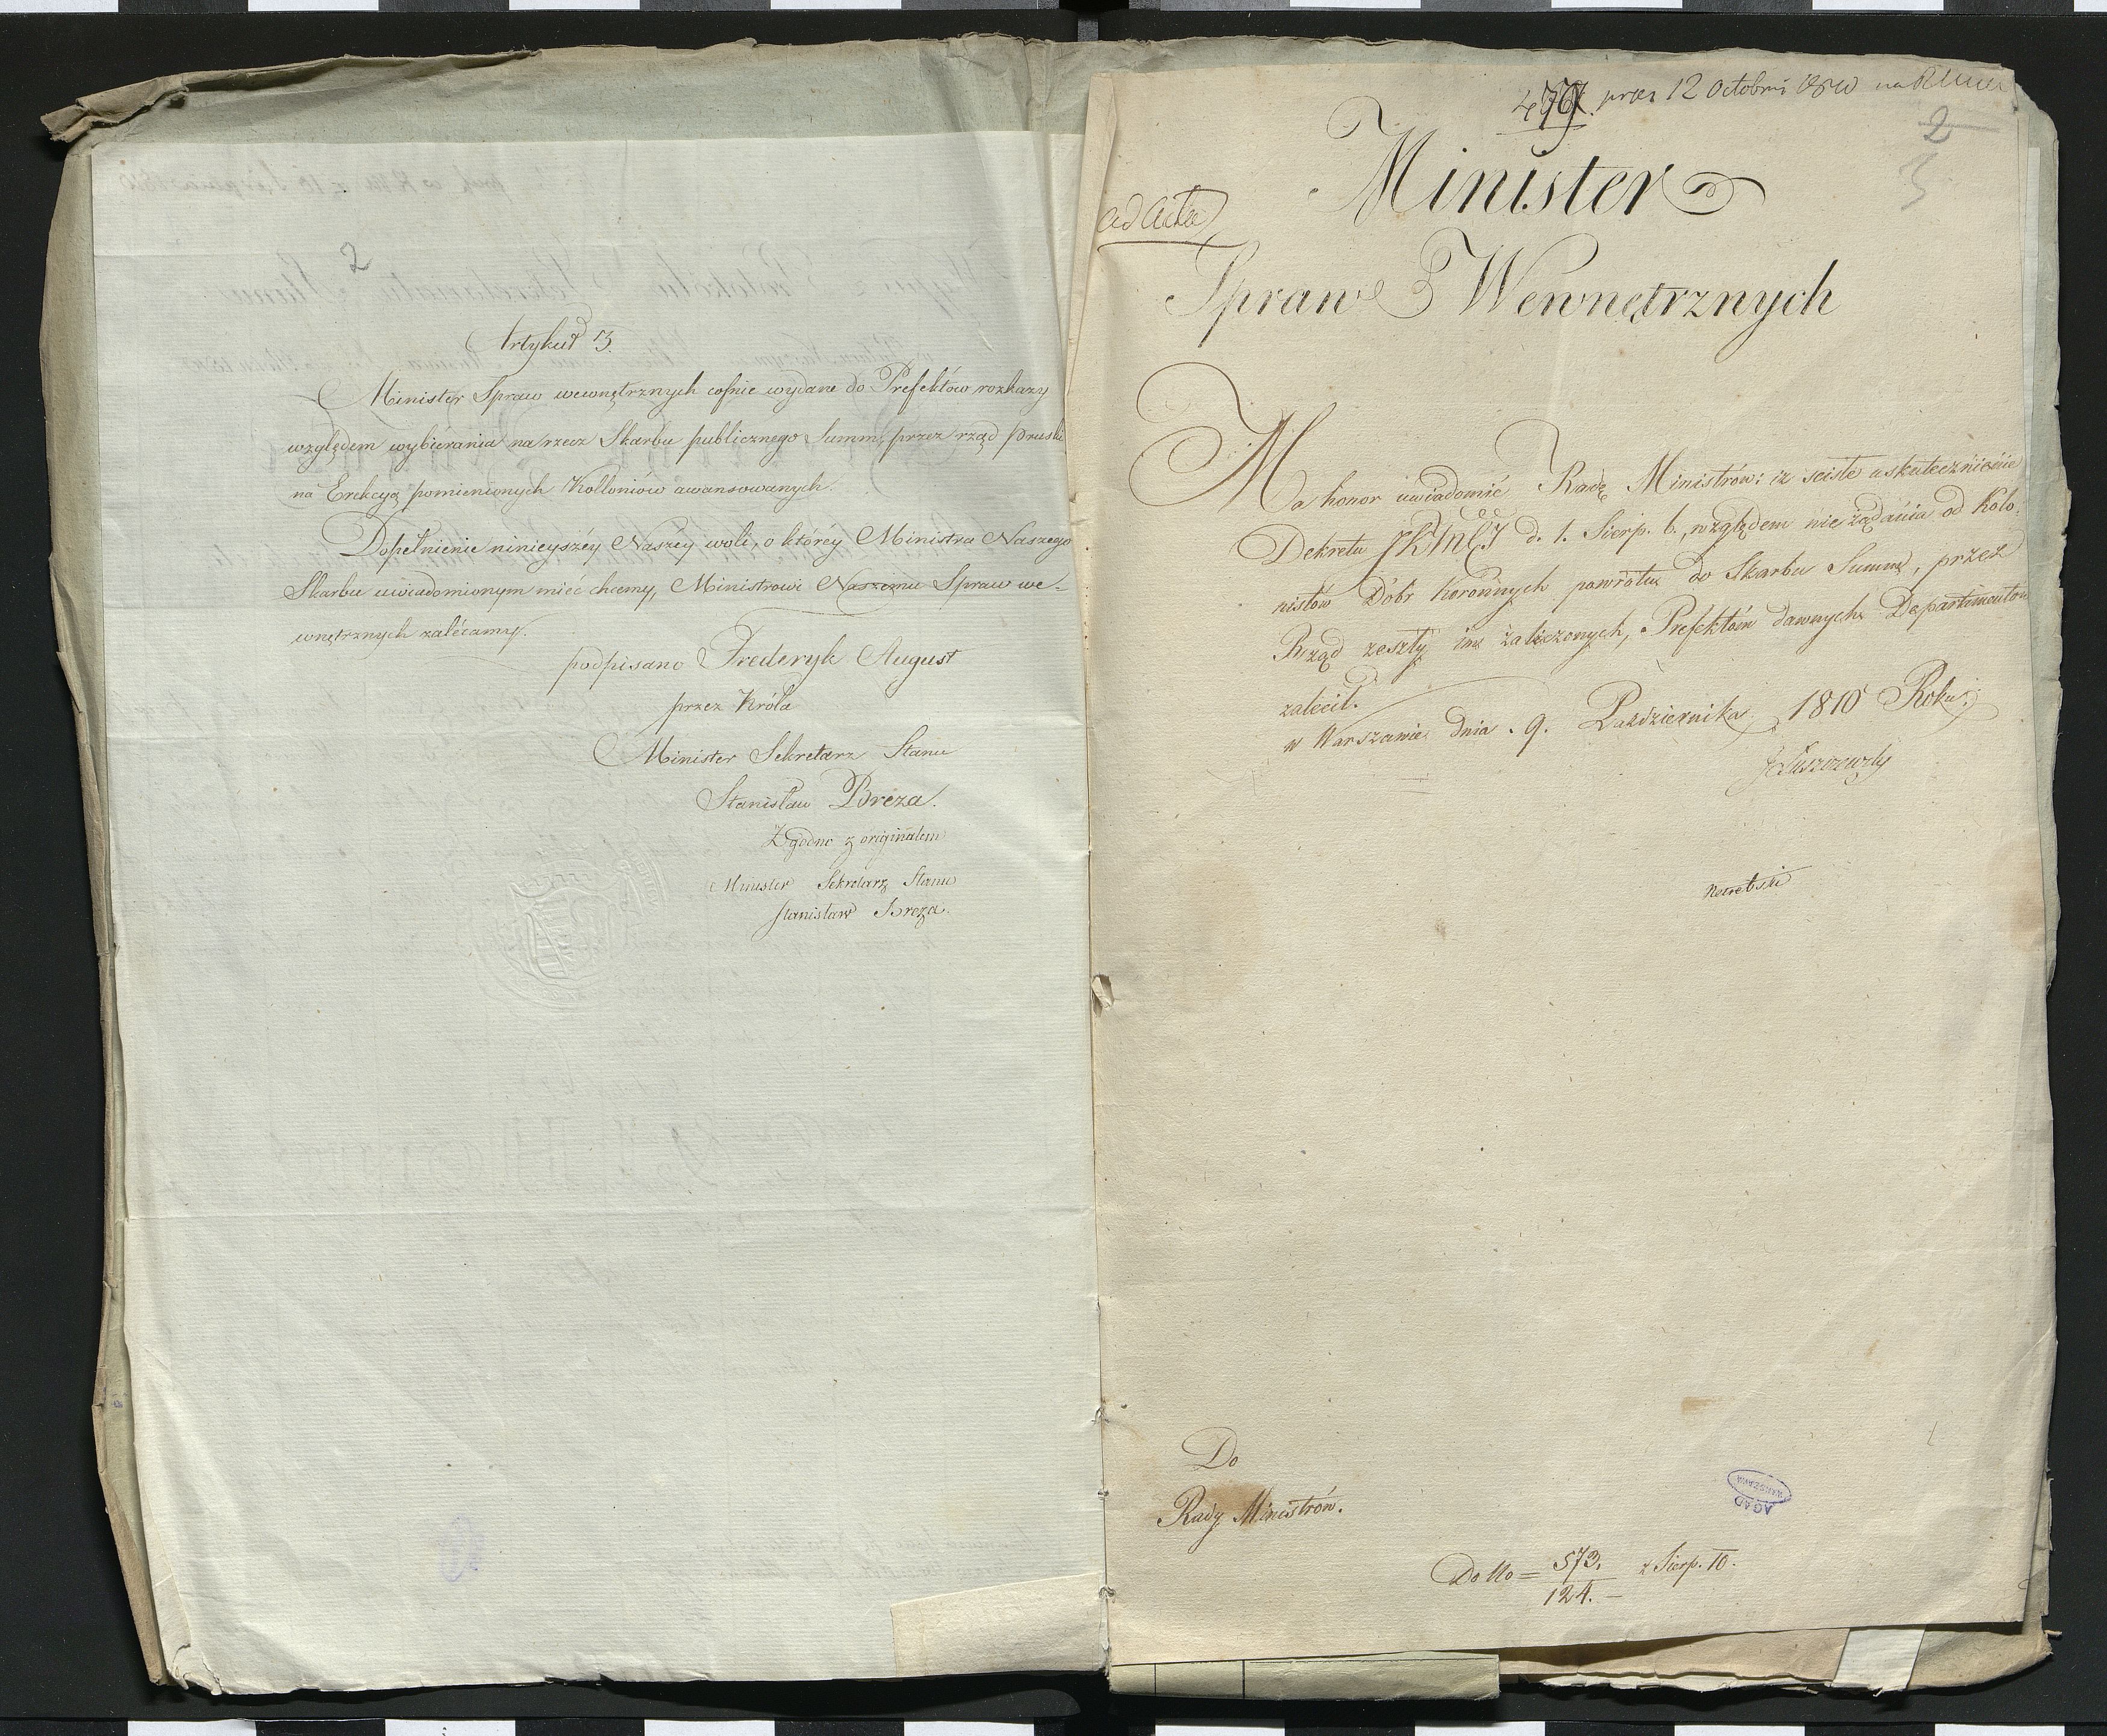 2
Artykuł 3.
Minister Spraw wewnętrznych cofnie wydane do Prefektów rozkazy
względem wybierania na rzecz Skarbu publicznego Summ, przez rząd pruski
na Erekcyą pomienionych Kolloniów awansowanych.
Dopełnienie ninieyszéy Naszéy woli, o któréy Ministra Naszego
Skarbu uwiadomionym mieć chcemy, Ministrowi Naszemu Spraw we-
wnętrznych zalécamy.
podpisano Frederyk August
przez Króla
Minister Sekretarz Stanu
Stanisław Breza.
Zgodno z originałem
Minister Sekretarz Stanu
Stanisław Breza.
pręs 12 Octobris 1810 na
2
3
ad acta
Minister
Spraw Wewnętrznych
Ma honor uwiadomić Radę Ministrów: iż ściśle uskutecznienie
Dekretu JKMCi d. 1. Sierp. b., względem nie żądania od Kolo-
nistów Dóbr Koronnych powrotu do Skarbu Summ, przez
Rząd zeszły im zaliczonych, Prefektom dawnych Departamentów
zalecił.
w Warszawie dnia 9. Października 1810 Roku.
JŁuszczewski
Do
Rady Ministrów.
AGAD
WARSZAWA
Do No = 573. z Sierp. 10.
124. —